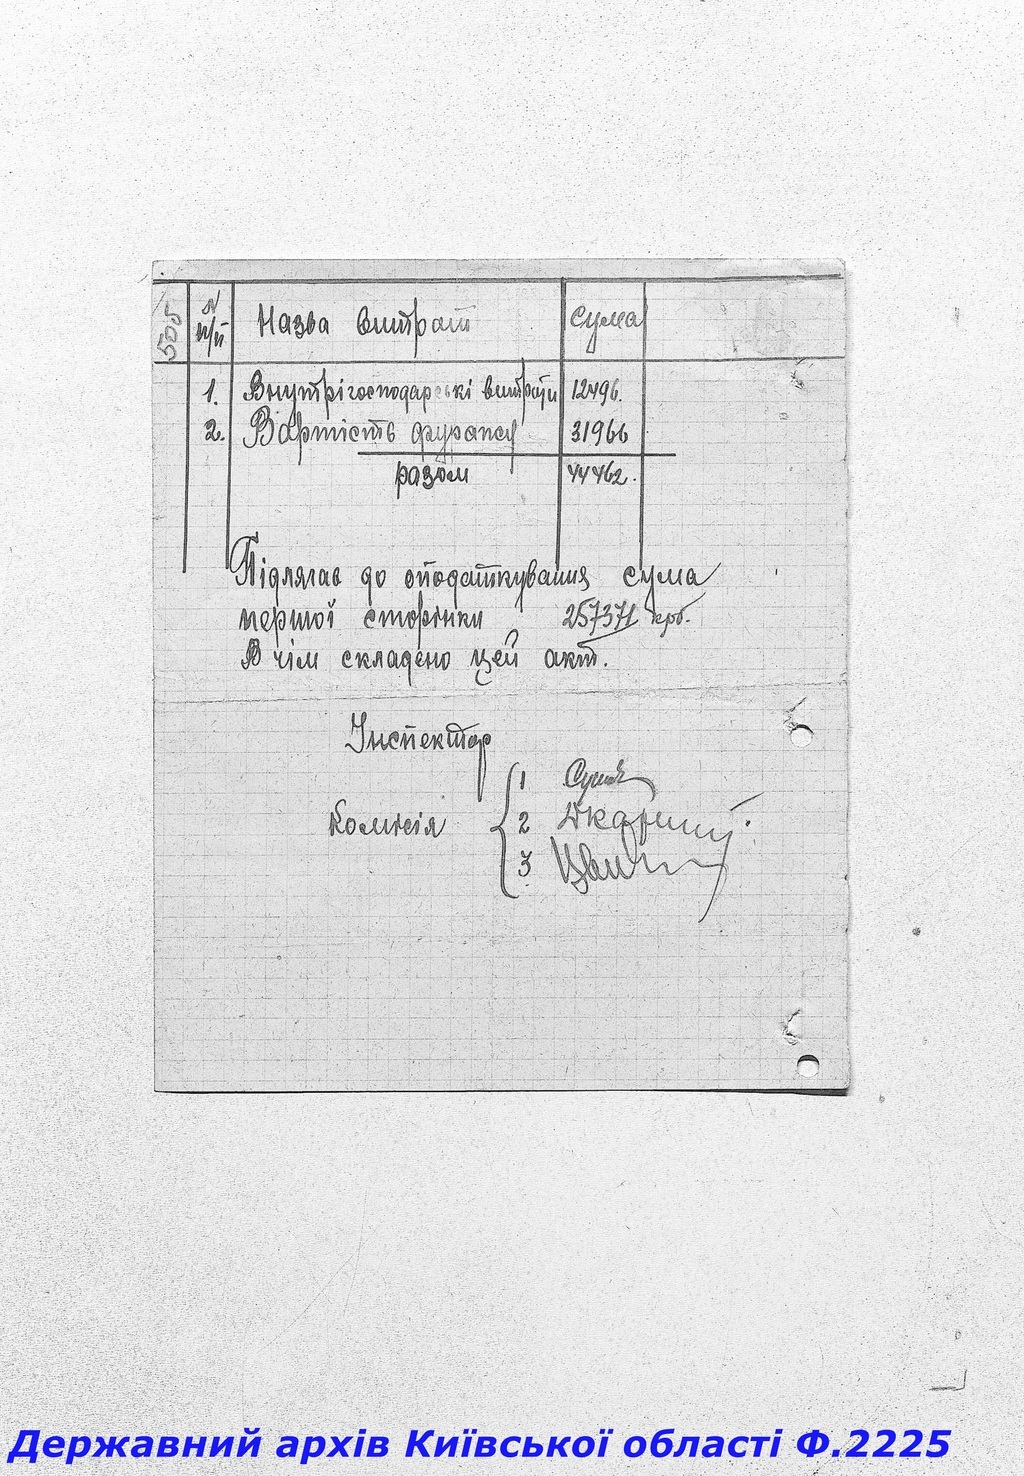 505
№ п/п Назва витрат сума
1. Внутрігосподарські витрати 12496.
2. Вартість фуража 31966
разом 44462.
Підлягає до оподаткування сума
першої сторінки 257371 крб.
В чім складено цей акт.
Інспектор
Комісія
1
2
3
Державний архів Київської області Ф.2225